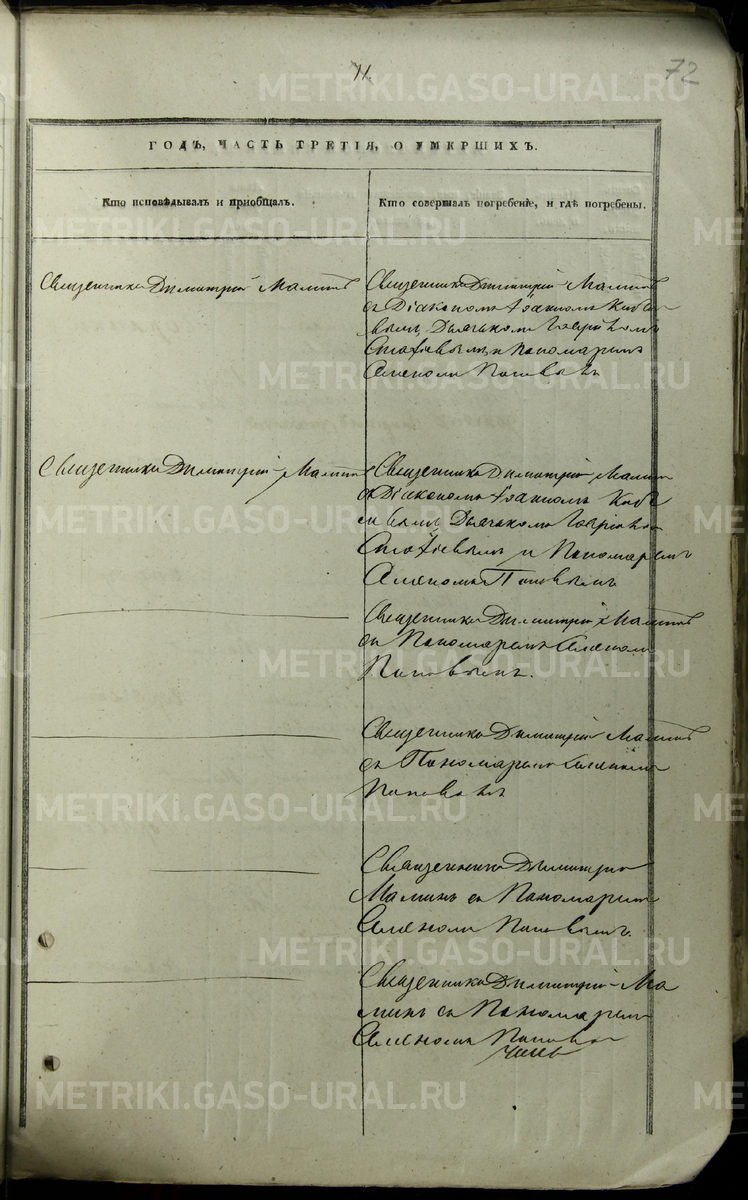 11.
72
METRIKI.GASO-URAL.RU
ГОДЪ, ЧАСТЬ ТРЕТІЯ, О УМЕРШИХЪ.
Кто исповѣдывалъ и пріобщалъ.
Кто совершалъ погребеніе, и гдѣ погребены.
Священникъ Димитрій Маминъ
Священникъ Димитрій Маминъ
съ Діакономъ Іоанномъ
Дьячкомъ
и Пономаремъ
Симеономъ Поповымъ
Священникъ Димитрій Маминъ
Священникъ Димитрій Маминъ
съ Діакономъ Іоанномъ
Дьячкомъ
и Пономаремъ
Симеономъ Поповымъ
Священникъ Димитрій Маминъ
съ Пономаремъ Симеономъ
Поповымъ.
Священникъ Димитрій Маминъ
съ Пономаремъ Симеономъ
Поповымъ
Священникъ Димитрій
Маминъ съ Пономаремъ
Симеономъ Поповымъ.
Священникъ Димитрій Ма
минъ съ Пономаремъ
Симеономъ